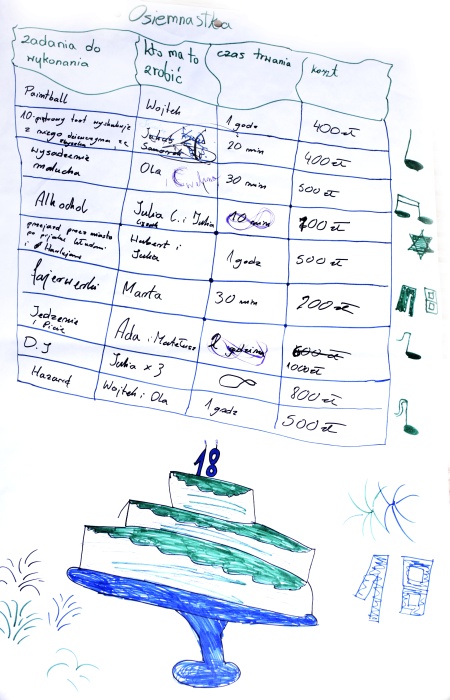 Osiemnastka
zadania do wykonania kto ma to zrobić czas trwania koszt
Paintball Wojtek 1 godz 400 zł
10-piętrowy tort wyskakuje z niego dziewczyna 20 min 400 zł
wysadzenie malucha Ola 30 min 500 zł
Alkohol Julia C. i Julia 10 min 700 zł
przejazd przez miasto po pijaku Hubert i Julka 1 godz 500 zł
fajerwerki Marta 30 min 200 zł
Jedzenie i Picie Ada i Mateusz 2 godziny 600 zł 1000 zł
D.J Julia x 3 ∞ 800 zł
Hazard Wojtek i Ola 1 godz 500 zł
18
18
18